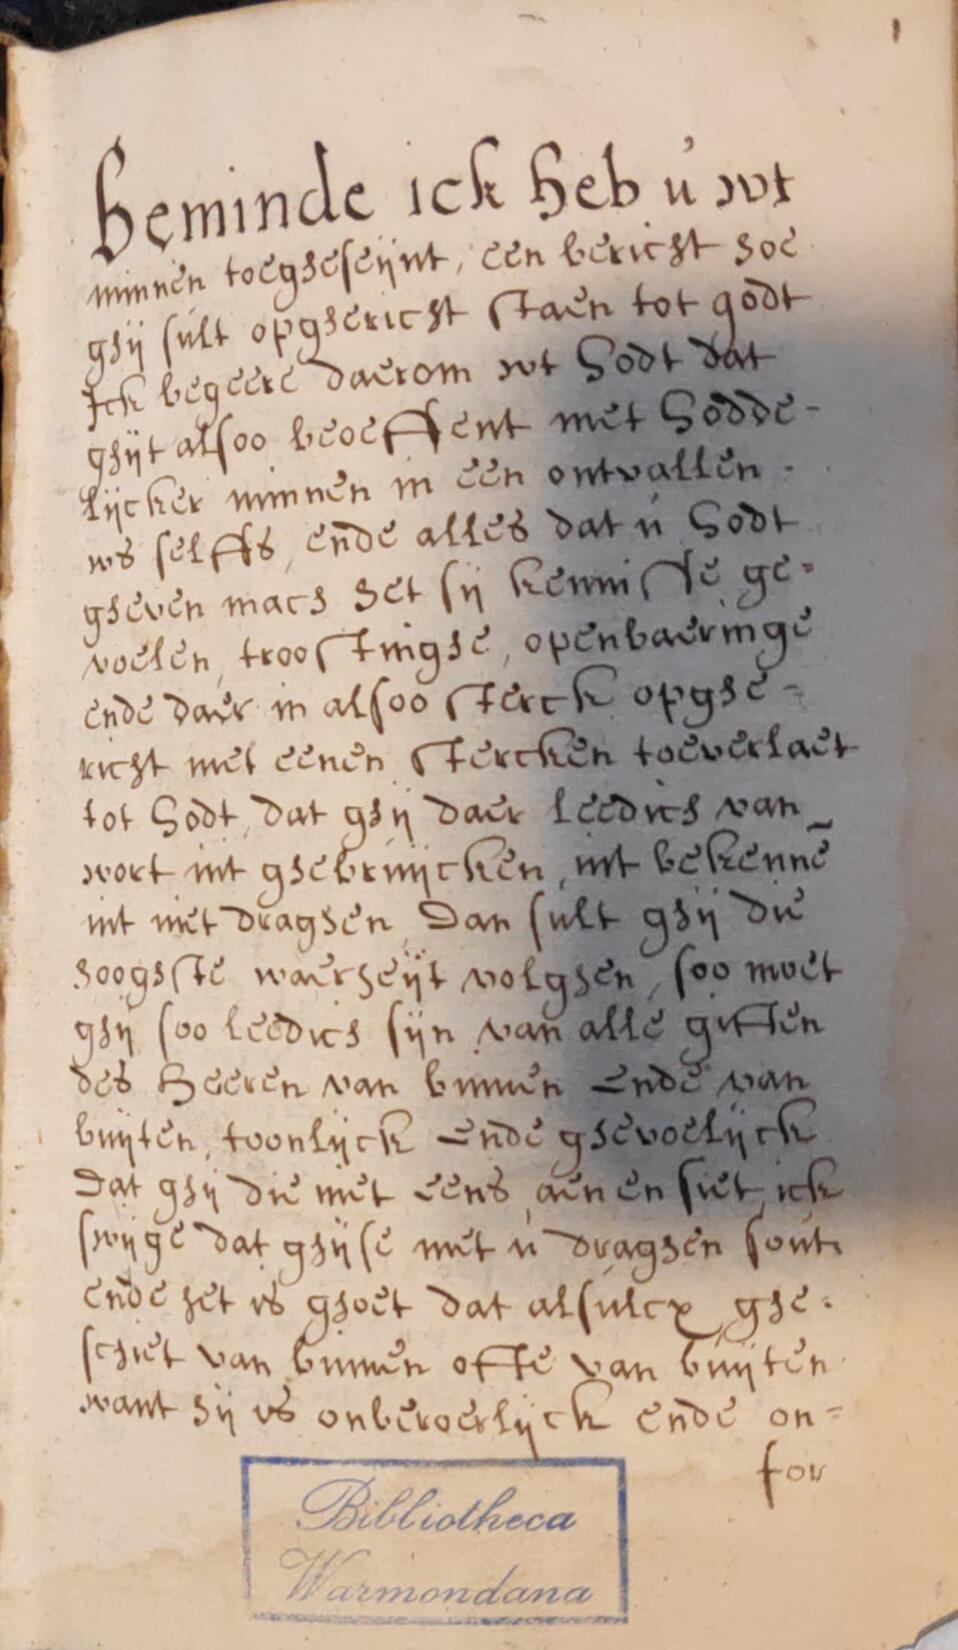 1
Beminde ick heb ú wt
minnen toegheseijnt, een bericht hoe
ghij sult opghericht staen tot godt
Ick begeere daerom wt Godt dat
ghijt alsoo beoeffent met Godde-
lijcker minnen in een ontvallen
ws selffs, ende alles dat ú Godt
gheven mach het sij kennisse ge-
voelen, troostinghe, openbaeringe
ende daer in alsoo sterck opghe-
richt met eenen stercken toeverlaet
tot Godt, dat ghij daer leedich van
wort int ghebruijcken, int bekennē
int met draghen, Dan sult ghij die
hooghste waerheijt volghen, soo moet
ghij soo leedich sijn van alle giften
des Heeren van binnen ende van
buijten, toonlijck ende ghevoelijck
Dat ghij die niet eens aen en siet, ick
swijge dat ghijse met ú draghen sout.
ende het is ghoet dat alsulcx ghe-
schiet van binnen ofte van buijten
want hij is onberoerlijck ende on-
for
Bibliotheca
Warmondana